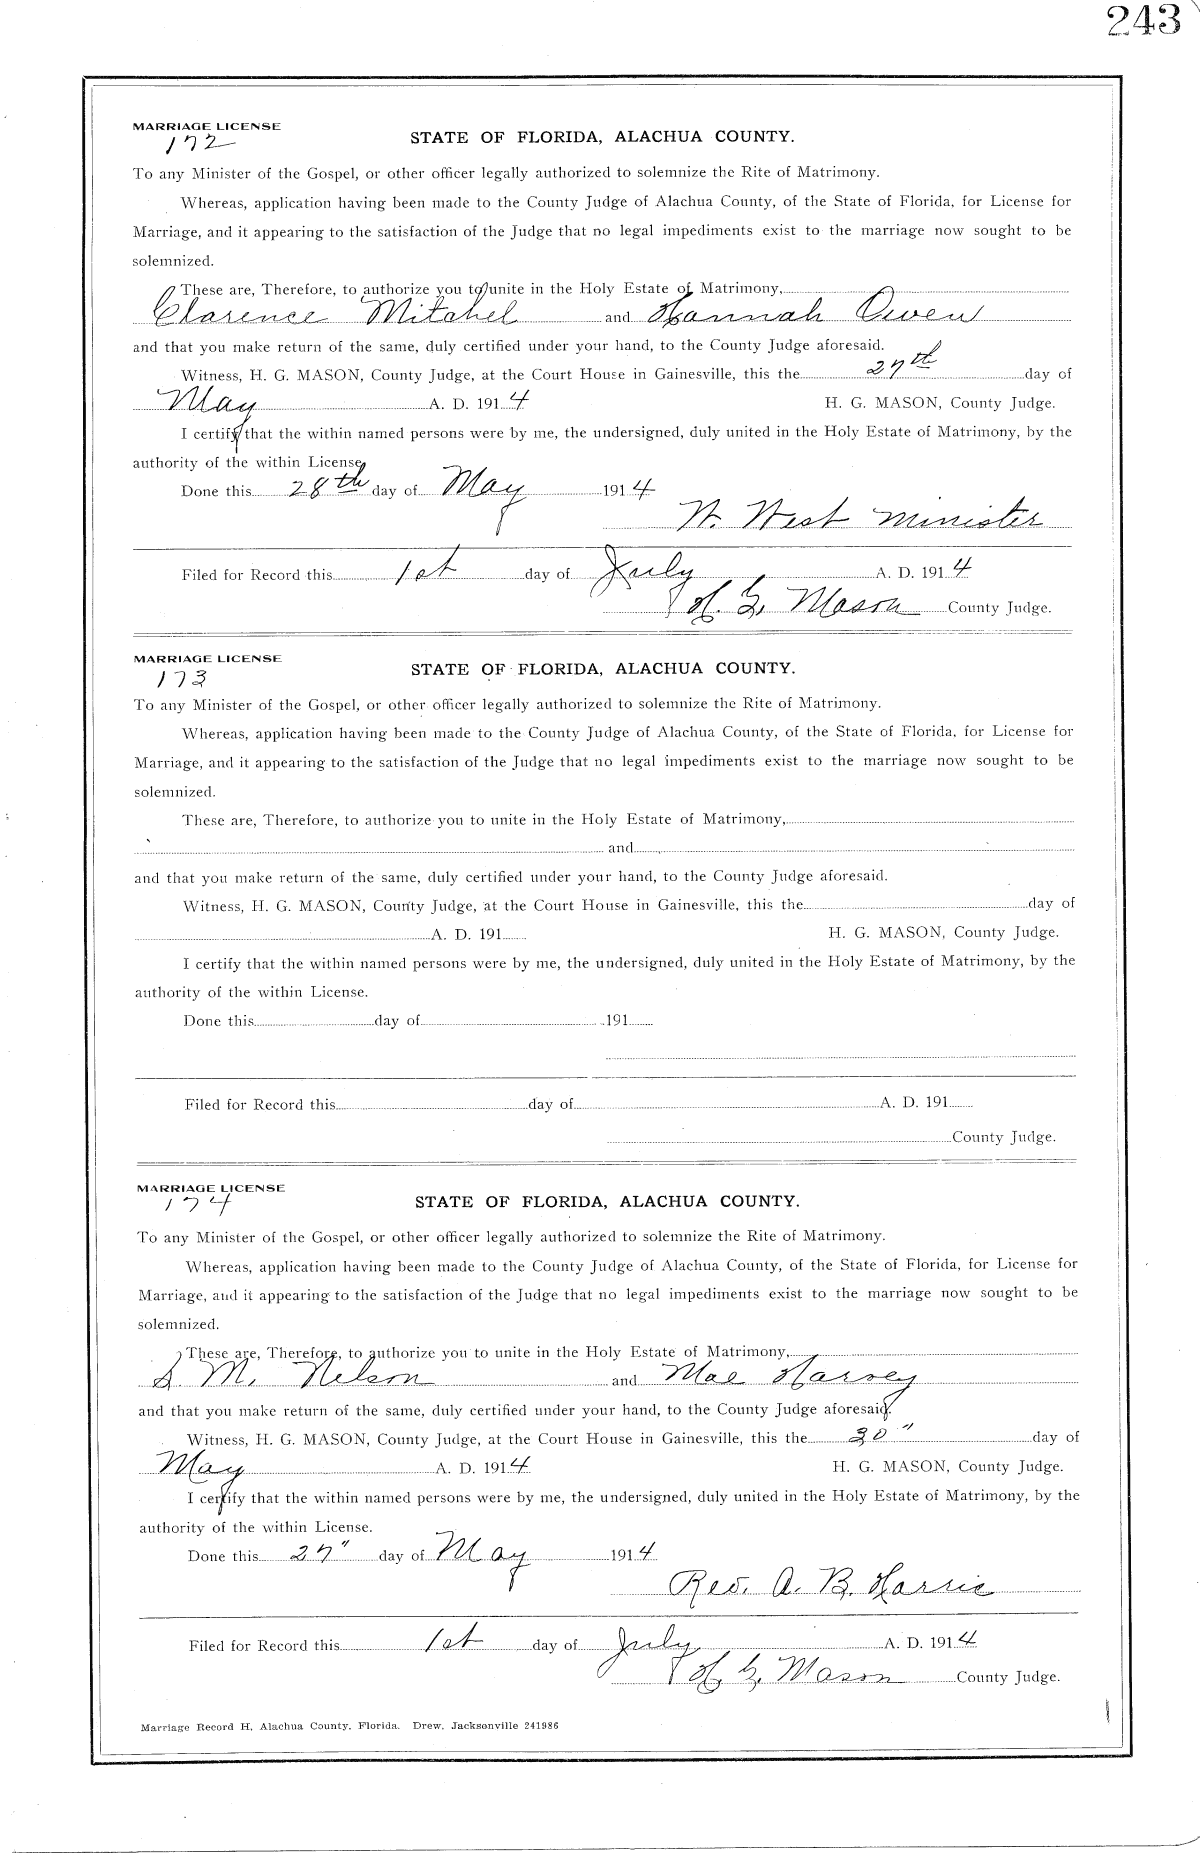 243
MARRIAGE LICENSE
172
STATE OF FLORIDA, ALACHUA COUNTY.
To any Minister of the Gospel, or other officer legally authorized to solemnize the Rite of Matrimony.
Whereas, application having been made to the County Judge of Alachua County, of the State of Florida, for License for
Marriage, and it appearing to the satisfaction of the Judge that no legal impediments exist to the marriage now sought to be
solemnized.
These are, Therefore, to authorize you to unite in the Holy Estate of Matrimony,
Clarence Mitchel and Hannah Owen
and that you make return of the same, duly certified under your hand, to the County Judge aforesaid.
Witness, H. G. MASON, County Judge, at the Court House in Gainesville, this the 27th day of
May A. D. 1914 H. G. MASON, County Judge.
I certify that the within named persons were by me, the undersigned, duly united in the Holy Estate of Matrimony, by the
authority of the within License.
Done this 28th day of May 1914
W. West Minister
Filed for Record this 1st day of July A. D. 1914
H. G. Mason County Judge.
MARRIAGE LICENSE
173
STATE OF FLORIDA, ALACHUA COUNTY.
To any Minister of the Gospel, or other officer legally authorized to solemnize the Rite of Matrimony.
Whereas, application having been made to the County Judge of Alachua County, of the State of Florida, for License for
Marriage, and it appearing to the satisfaction of the Judge that no legal impediments exist to the marriage now sought to be
solemnized.
These are, Therefore, to authorize you to unite in the Holy Estate of Matrimony,
and
and that you make return of the same, duly certified under your hand, to the County Judge aforesaid.
Witness, H. G. MASON, County Judge, at the Court House in Gainesville, this the day of
A. D. 191 H. G. MASON, County Judge.
I certify that the within named persons were by me, the undersigned, duly united in the Holy Estate of Matrimony, by the
authority of the within License.
Done this day of 191
Filed for Record this day of A. D. 191
County Judge.
MARRIAGE LICENSE
174
STATE OF FLORIDA, ALACHUA COUNTY.
To any Minister of the Gospel, or other officer legally authorized to solemnize the Rite of Matrimony.
Whereas, application having been made to the County Judge of Alachua County, of the State of Florida, for License for
Marriage, and it appearing to the satisfaction of the Judge that no legal impediments exist to the marriage now sought to be
solemnized.
These are, Therefore, to authorize you to unite in the Holy Estate of Matrimony,
S M. Nelson and Mae Harvey
and that you make return of the same, duly certified under your hand, to the County Judge aforesaid.
Witness, H. G. MASON, County Judge, at the Court House in Gainesville, this the 30" day of
May A. D. 1914 H. G. MASON, County Judge.
I certify that the within named persons were by me, the undersigned, duly united in the Holy Estate of Matrimony, by the
authority of the within License.
Done this 27" day of May 1914
Rev. A. B. Harris
Filed for Record this 1st day of July A. D. 1914
H. G. Mason County Judge.
Marriage Record H, Alachua County, Florida. Drew, Jacksonville 241986